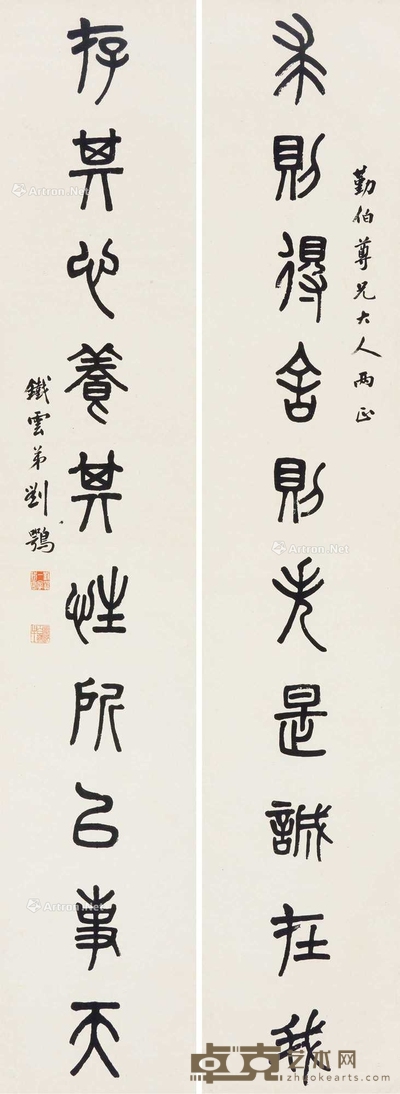 勤伯尊兄大人兩正
求則得舍則失是誠在我
存其心養其性所以事天
鐵雲弟劉鶚
Artron.Net
Artron.Net
Artron.Net
Artron.Net
卓克艺术网
www.zhuokearts.com